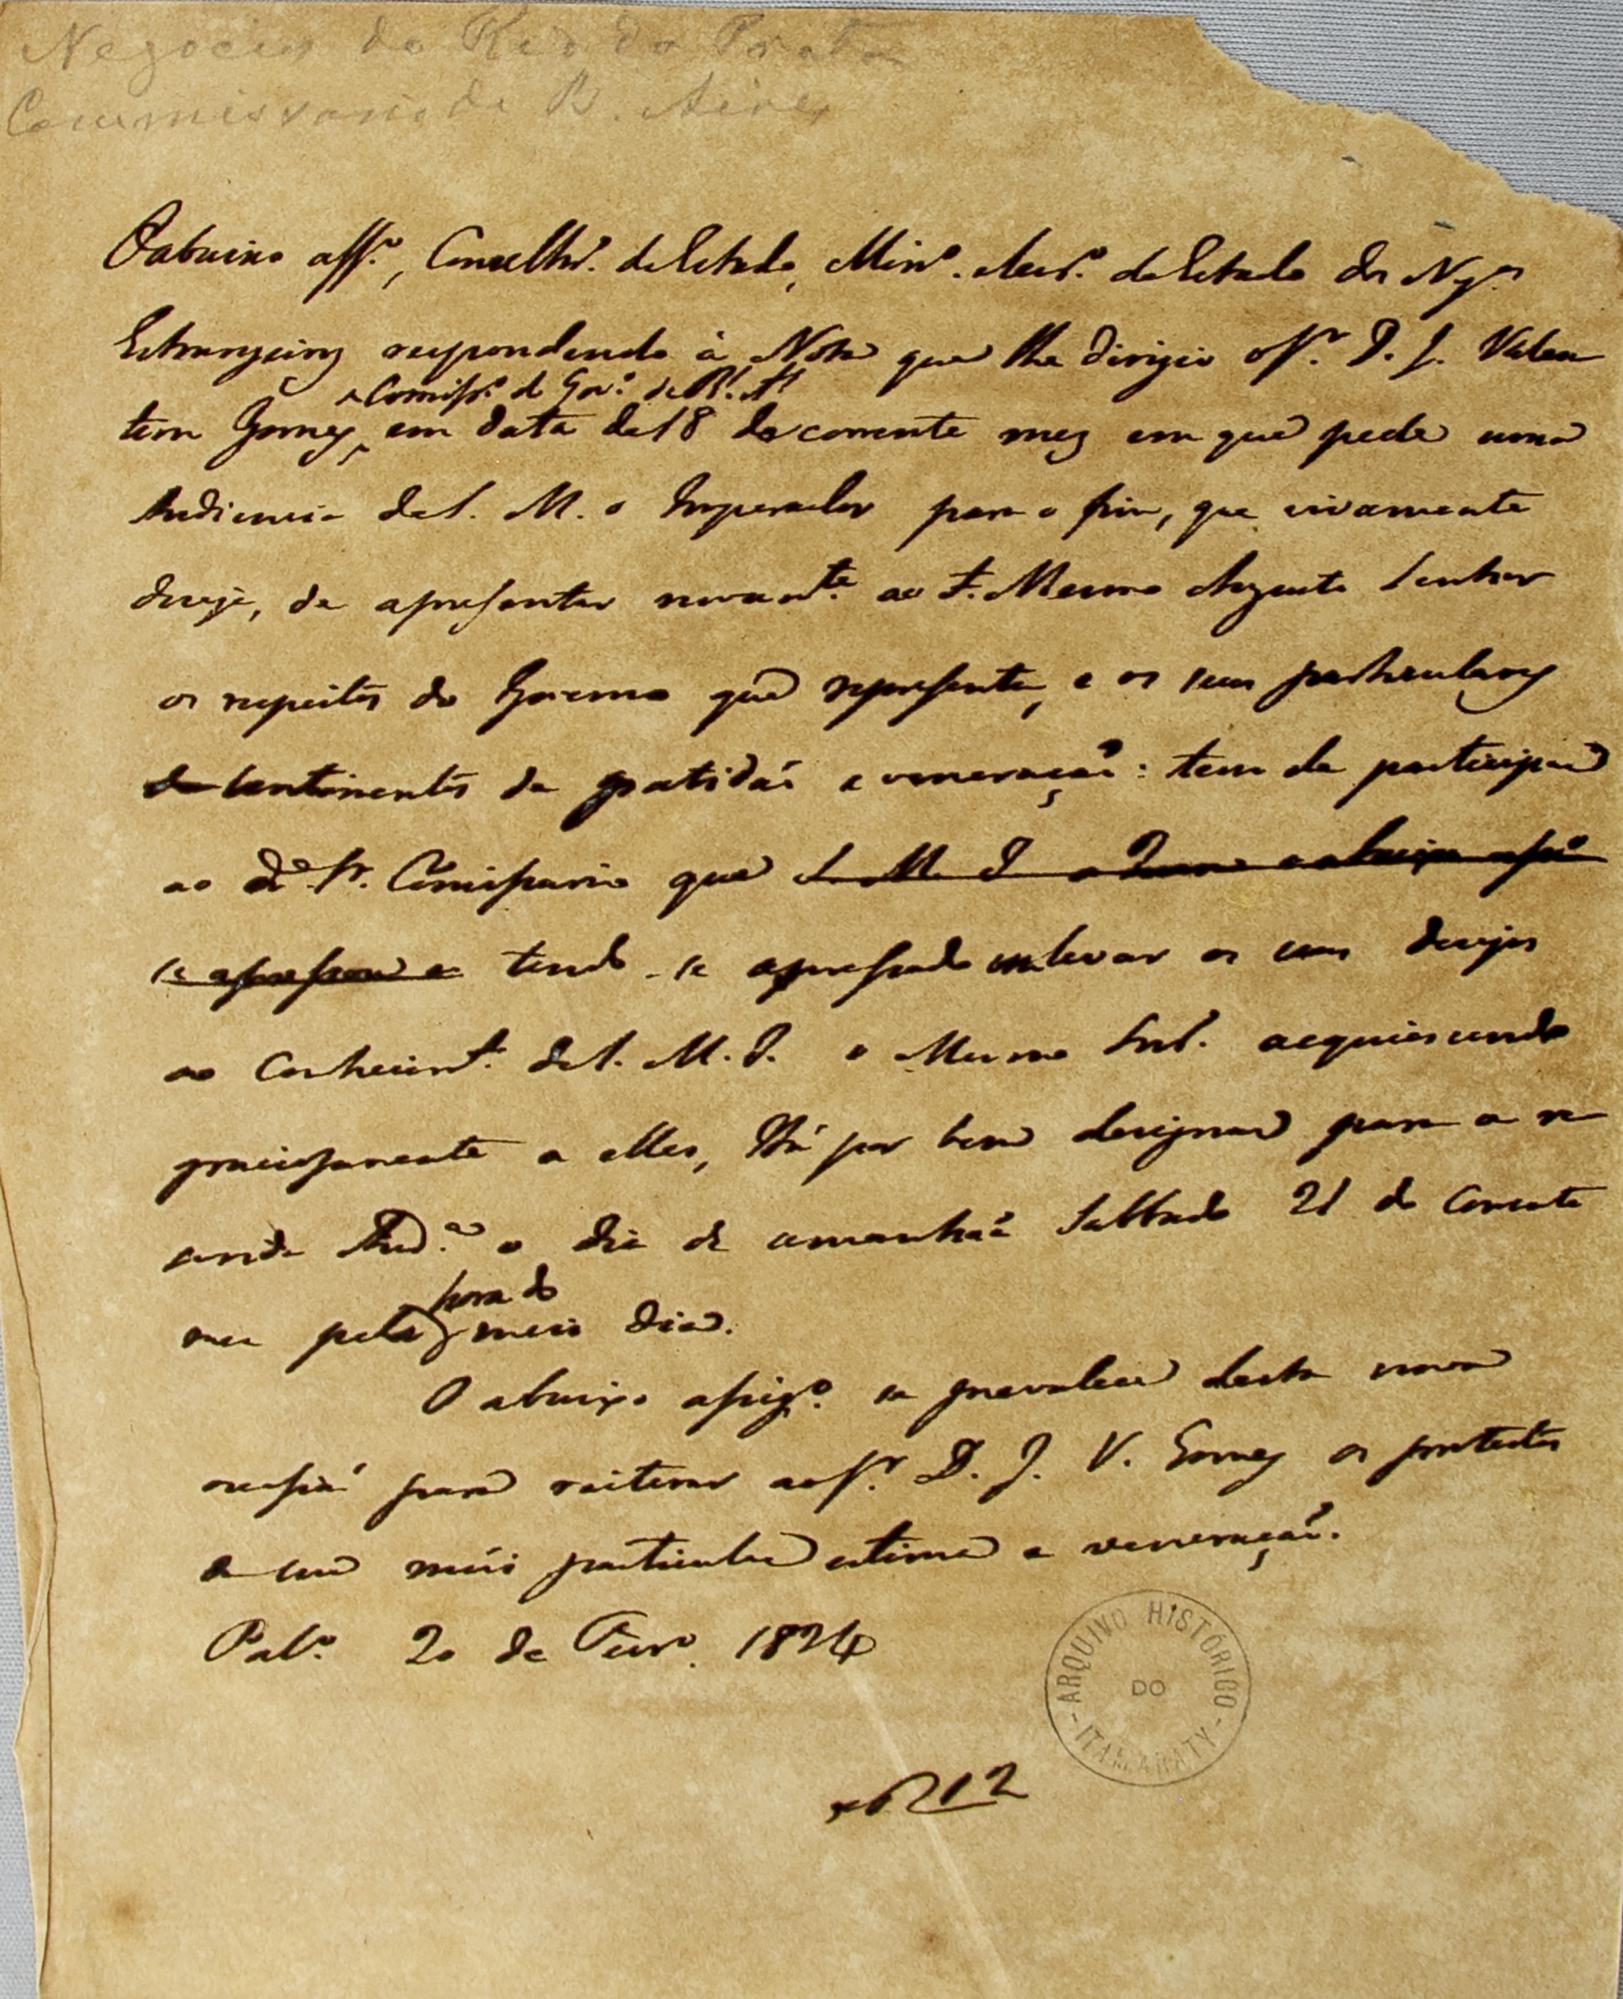 Negocios do Rio da Prata
Commissario de B. Aires
O abaixo ass.º, Conselhr.º d'Estado, Minº. e Secr.º d'Estado dos Neg.os
Estrangeiros respondendo à Nota que lhe dirigio o Sr. D. J. Valen
Comissº. do Gov.º de B.s A.s
tem Gomes, em data de 18 do corrente mez em que pede uma
Audiencia de S. M. o Imperador para o fim, que vivamente
deseja, de apresentar novamte. ao Mesmo Augusto Senhor
os respeitos do Governo que representa, e os seus particulares
sentimentos de gratidaõ e veneraçaõ: tem de participar
ao dº. Sr. Comissario que S. M. I. a Quem o abaixo assº
se apressou a tendo-se apressado em levar os seus desejos
ao Conhecimt.º de S. M. I. o Mesmo Snr. acquiescendo
graciosamente a elles, Há por bem designar para a re
ferida Aud.ª o dia de amanhaã Sabbado 21 do Corrente
hora do
mez pela meio dia.
O abaixo assig.º se prevalece desta nova
occasiaõ para reiterar ao Sr. D. J. V. Gomes os protestos
de sua mais particular estima e veneraçaõ.
Pal.º 20 de Fevrº. 1824
212
ARQUIVO HISTÓRICO
DO
ITAMARATY